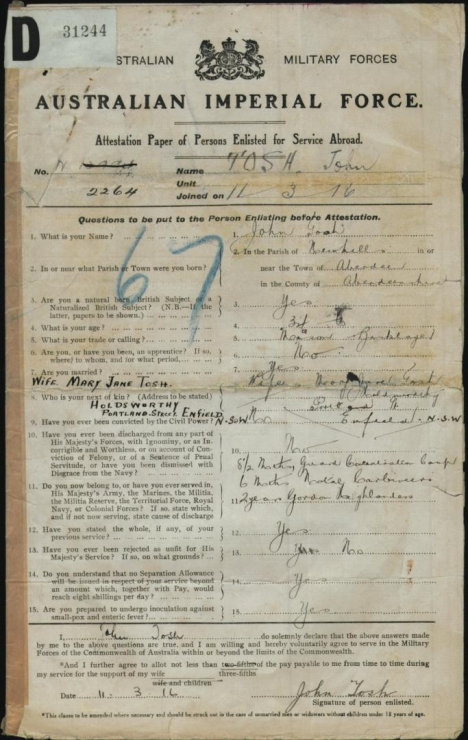 D 31244
AUSTRALIAN MILITARY FORCES
AUSTRALIAN IMPERIAL FORCE.
Attestation Paper of Persons Enlisted for Service Abroad.
No. N
2264
Name TOSH. John
Unit
Joined on 11 3 16
Questions to be put to the Person Enlisting before Attestation.
67
1. What is your Name? 1. John Tosh
2. In or near what Parish or Town were you born? 2. In the Parish of Newhills in or
near the Town of Aberdeen
in the County of Aberdeenshire
3. Are you a natural born British Subject or a
Naturalized British Subject? (N.B.—If the
latter, papers to be shown.) 3. Yes
4. What is your age? 4. 34
5. What is your trade or calling? 5.
6. Are you, or have you been, an apprentice? If so,
where? to whom, and for what period. 6. No
7. Are you married? 7. Yes
WIFE MARY JANE TOSH.
8. Who is your next of kin? (Address to be stated) Wife Mary Jane Tosh
HOLDSWORTHY Holdsworthy
PORTLAND STREET ENFIELD Portland St
N.S.W Enfield N.S.W
9. Have you ever been convicted by the Civil Power? 9. No
10. Have you ever been discharged from any part of
His Majesty's Forces, with Ignominy, or as Incor-
rigible and Worthless, or on account of Con-
viction of Felony, or of a Sentence of Penal
Servitude, or have you been dismissed with
Disgrace from the Navy? 10. No
11. Do you now belong to, or have you ever served in,
His Majesty's Army, the Marines, the Militia,
the Militia Reserve, the Territorial Force, Royal
Navy, or Colonial Forces? If so, state which,
and if not now serving, state cause of discharge
8½ Months Guard Concentration Camp
6 Months Natal Carbineers
11. 2 years Gordon Highlanders
12. Have you stated the whole, if any, of your
previous service? 12. Yes
13. Have you ever been rejected as unfit for His
Majesty's Service? If so, on what grounds? 13. Yes No
14. Do you understand that no Separation Allowance
will be issued in respect of your service beyond
an amount which, together with Pay, would
reach eight shillings per day? 14. Yes
15. Are you prepared to undergo inoculation against
small-pox and enteric fever? 15. Yes
I, John Tosh do solemnly declare that the above answers made
by me to the above questions are true, and I am willing and hereby voluntarily agree to serve in the Military
Forces of the Commonwealth of Australia within or beyond the limits of the Commonwealth.
*And I further agree to allot not less than two-fifths of the pay payable to me from time to time during
three-fifths
my service for the support of my wife
wife and children
Date 11. 3 16 John Tosh
Signature of person enlisted.
*This clause to be amended where necessary and should be struck out in the case of unmarried men or widowers without children under 18 years of age.